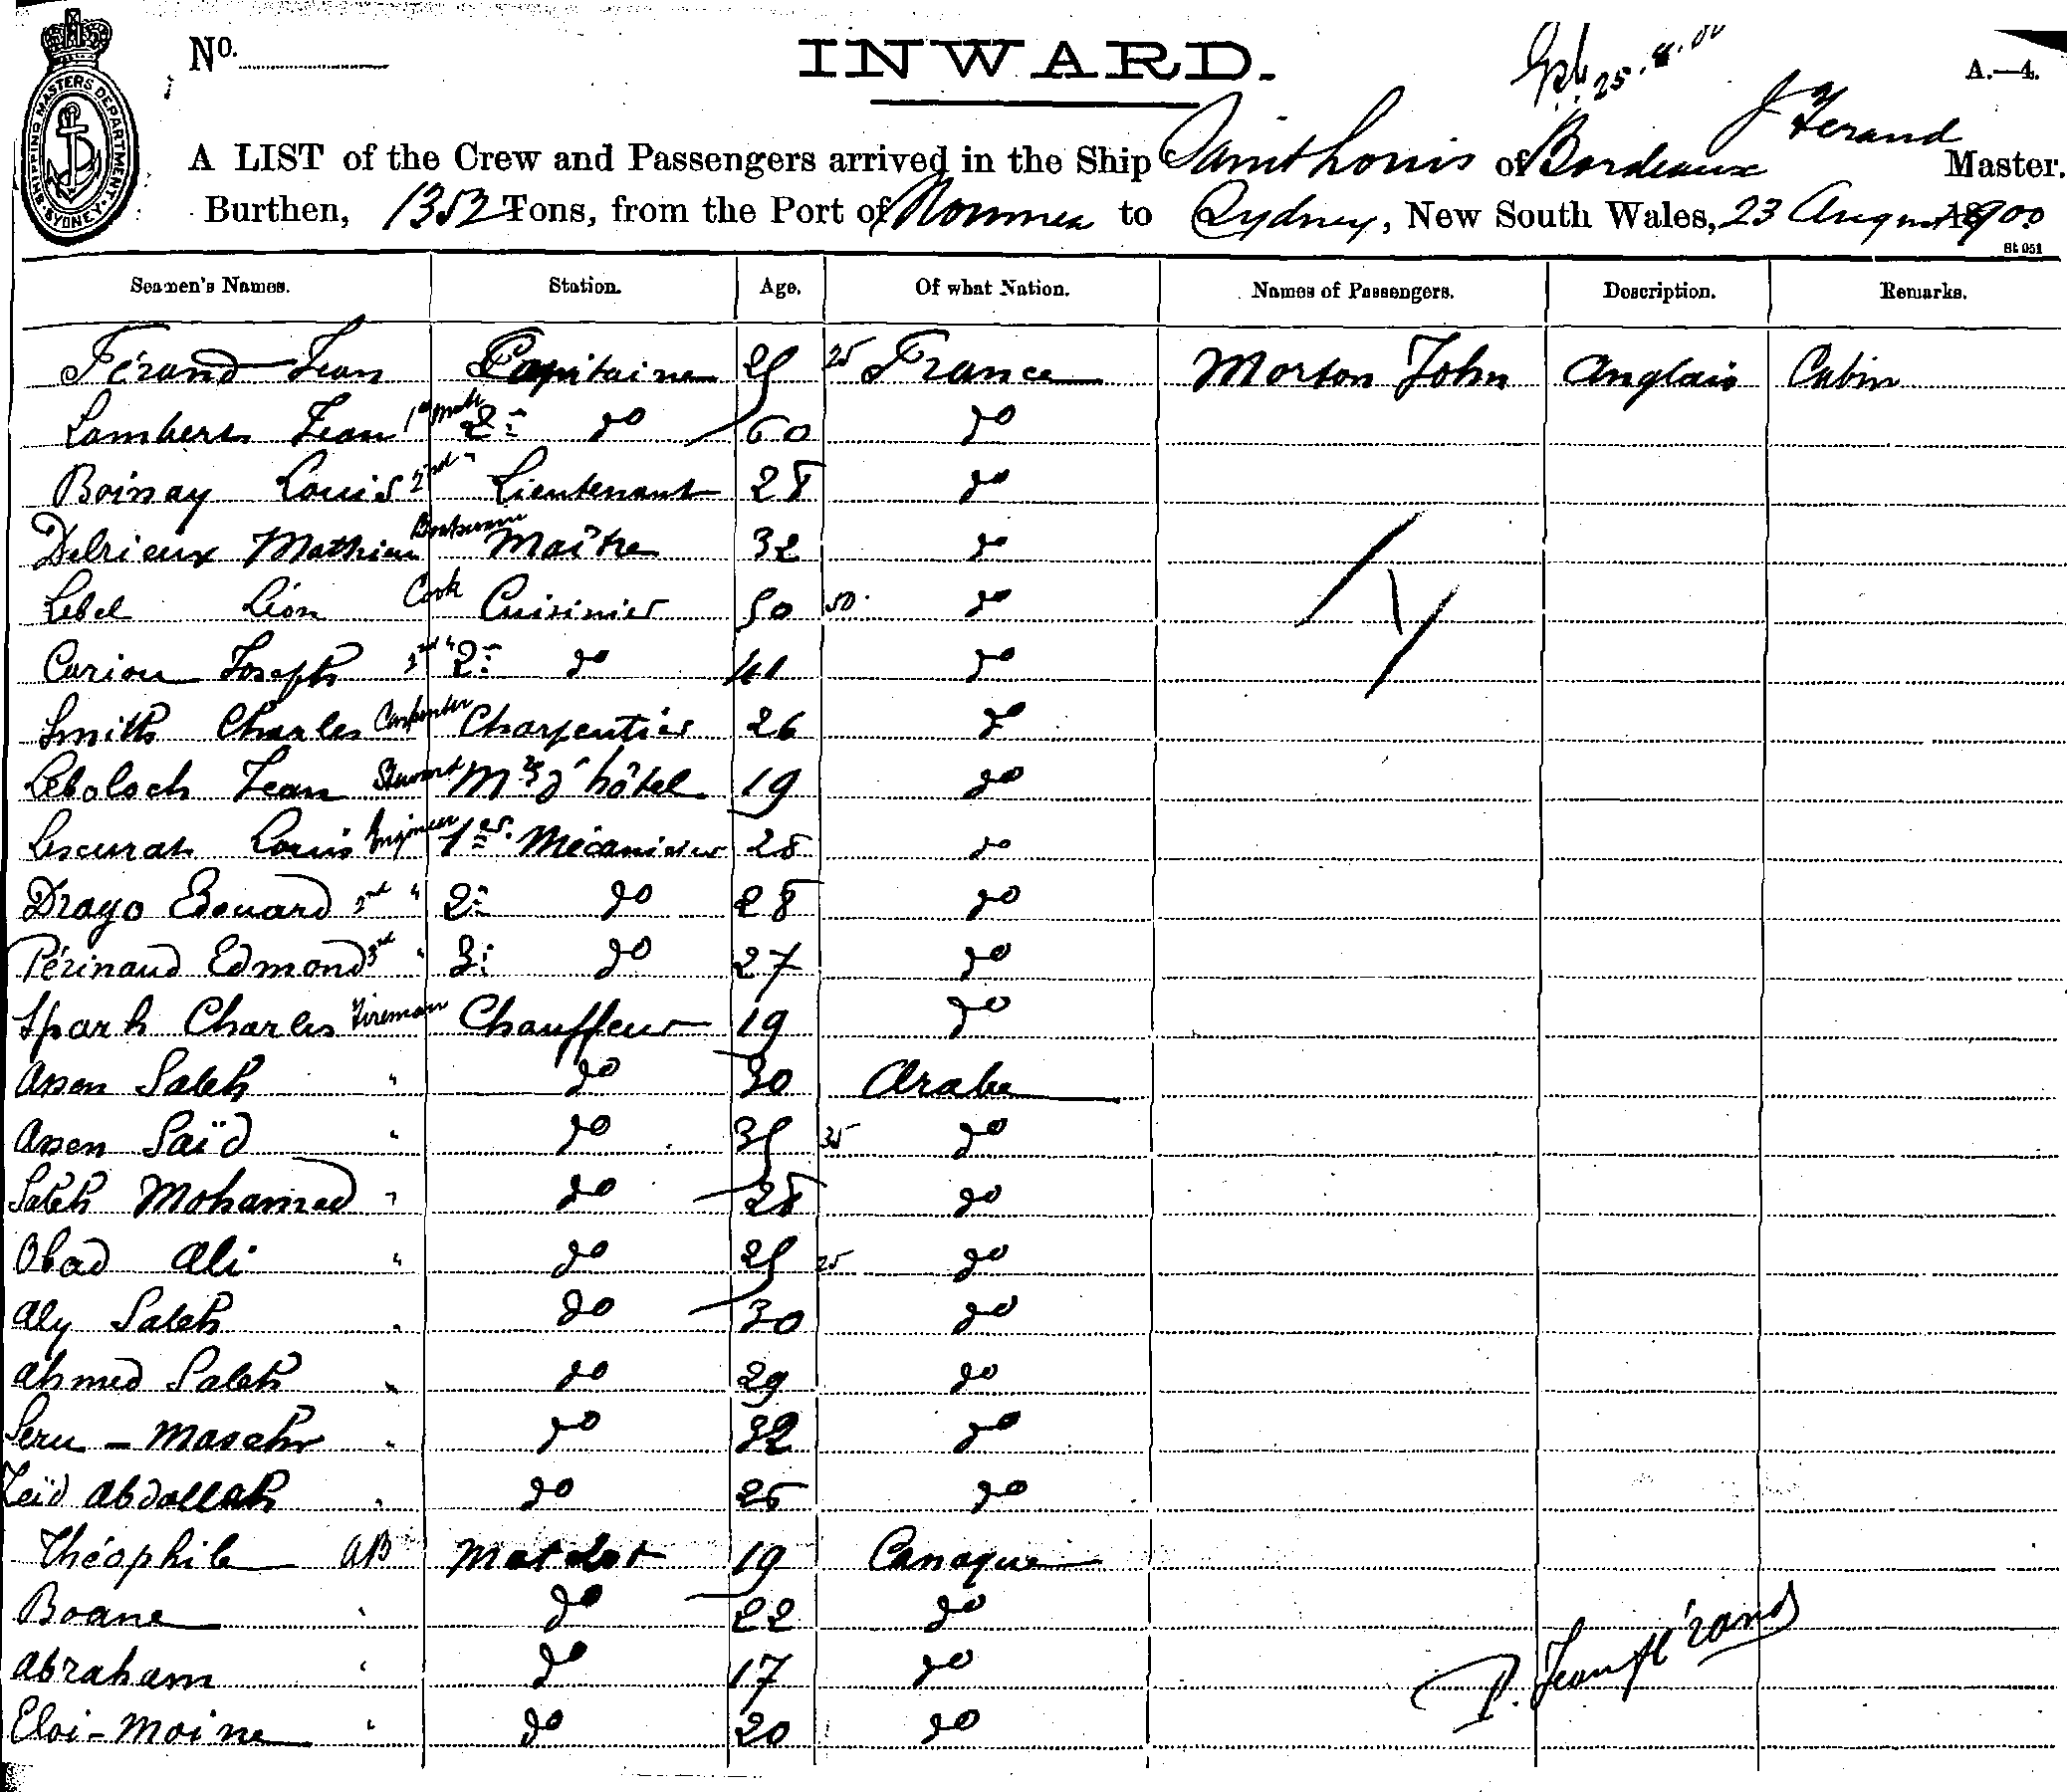 No.
INWARD.
25.8.00
A.—4.
SHIPPING MASTERS DEPARTMENT SYDNEY
J Ferand
A LIST of the Crew and Passengers arrived in the Ship Saint Louis of Bordeaux Master.
Burthen, 1352 Tons, from the Port of Noumea to Sydney, New South Wales, 23 August 1900.
St 051
Seamen's Names. Station. Age. Of what Nation. Names of Passengers. Description. Remarks.
Férand Jean Capitaine 25 25 France Morton John Anglais Cabin
Lambert Jean 1st mate 2e do 60 do
Boinay Louis 2nd " Lieutenant 28 do
Delrieux Mathieu Boatswain Maître 32 do
Lebel Léon Cook Cuisinier 50 50 do
Cariou Joseph 2nd " 2e do 41 do
Smith Charles Carpenter Charpentier 26 do
Leboloch Jean Steward Me d'hôtel 19 do
Lescurat Louis Engineer 1er Mécanicien 28 do
Drago Edouard 2nd " 2e do 28 do
Périnaud Edmond 3rd " 3e do 27 do
Spark Charles Fireman Chauffeur 19 do
Assen Saleh " do 30 Arabe
Assen Saïd " do 35 35 do
Saleh Mohamed " do 28 do
Obad Ali " do 25 25 do
Aly Saleh " do 30 do
Ahmed Saleh " do 29 do
Seru - Masehr " do 32 do
Zeïd Abdallah " do 25 do
Théophile AB Matelot 19 Canaque
Boane " do 22 do
Abraham " do 17 do
Eloi-Moine " do 20 do
P. Jean Férand